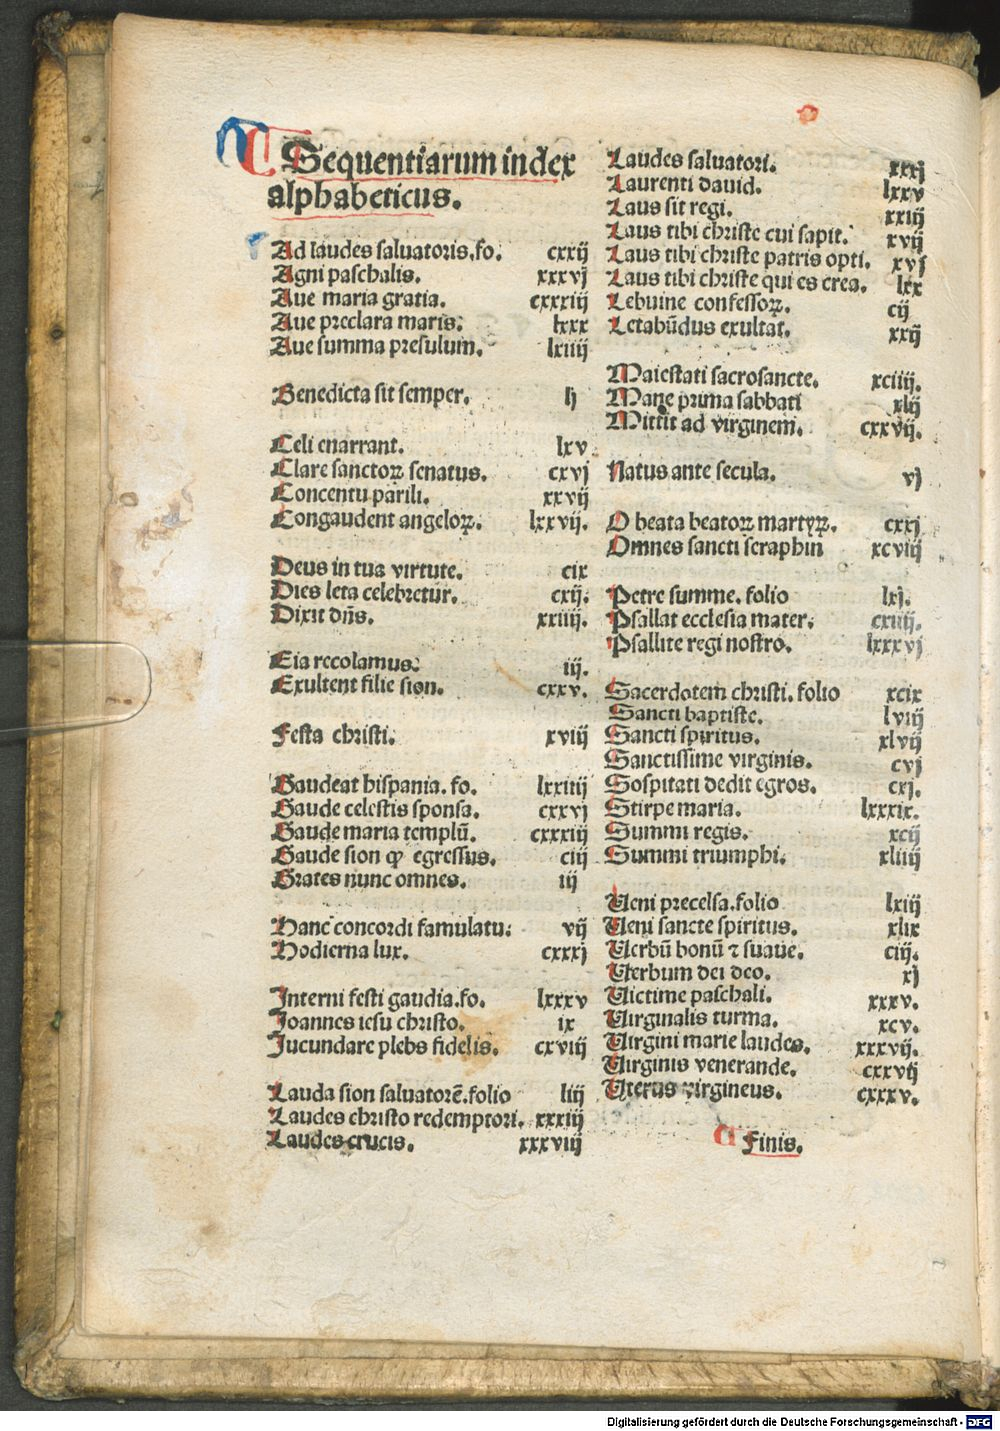 Sequentiarum index
alphabeticus.
Ad laudes saluatoris. fo. cxxij
Agni paschalis. xxxvj
Aue maria gratia. cxxxiij
Aue preclara maris. lxxx
Aue summa presulum. lxiiij
Benedicta sit semper. lj
Celi enarrant. lxv
Clare sanctoꝝ senatus. cxvj
Concentu parili. xxvij
Congaudent angeloꝝ. lxxvij.
Deus in tua virtute. cix
Dies leta celebretur. cxij.
Dixit dñs. xxiiij.
Eia recolamus. iij.
Exultent filie sion. cxxv.
Festa christi. xviij
Gaudeat hispania. fo. lxxiiij
Gaude celestis sponsa. cxxvj
Gaude maria templũ. cxxxiij
Gaude sion ꝙ egressus. ciij
Grates nunc omnes. iij
Hanc concordi famulatu. vij
Hodierna lux. cxxxj
Interni festi gaudia. fo. lxxxv
Joannes iesu christo. ix
Jucundare plebs fidelis. cxviij
Lauda sion saluatorẽ. folio liij
Laudes christo redemptori. xxxiij
Laudes crucis. xxxviij
Laudes saluatori. xxxj
Laurenti dauid. lxxv
Laus sit regi. xxiij
Laus tibi christe cui sapit. xvij
Laus tibi christe patris opti. xvj
Laus tibi christe qui es crea. lxx
Lebuine confessoꝝ. cij
Letabũdus exultat. xxij
Maiestati sacrosancte. xciiij.
Mane prima sabbati xlij
Mittit ad virginem. cxxvij.
Natus ante secula. vj
O beata beatoꝝ martyꝝ. cxxj
Omnes sancti seraphin xcviij
Petre summe. folio lxj.
Psallat ecclesia mater. cxiiij.
Psallite regi nostro. lxxxvj
Sacerdotem christi. folio xcix
Sancti baptiste. lviij
Sancti spiritus. xlvij
Sanctissime virginis. cvj
Sospitati dedit egros. cxj.
Stirpe maria. lxxxix.
Summi regis. xcij
Summi triumphi. xliiij
Ueni precelsa. folio lxiij
Ueni sancte spiritus. xlix
Uerbũ bonũ ⁊ suaue. ciij.
Uerbum dei deo. xj
Uictime paschali. xxxv.
Uirginalis turma. xcv.
Uirgini marie laudes. xxxvij.
Uirginis venerande. cxxvij
Uterus virgineus. cxxxv.
Finis.
Digitalisierung gefördert durch die Deutsche Forschungsgemeinschaft - DFG